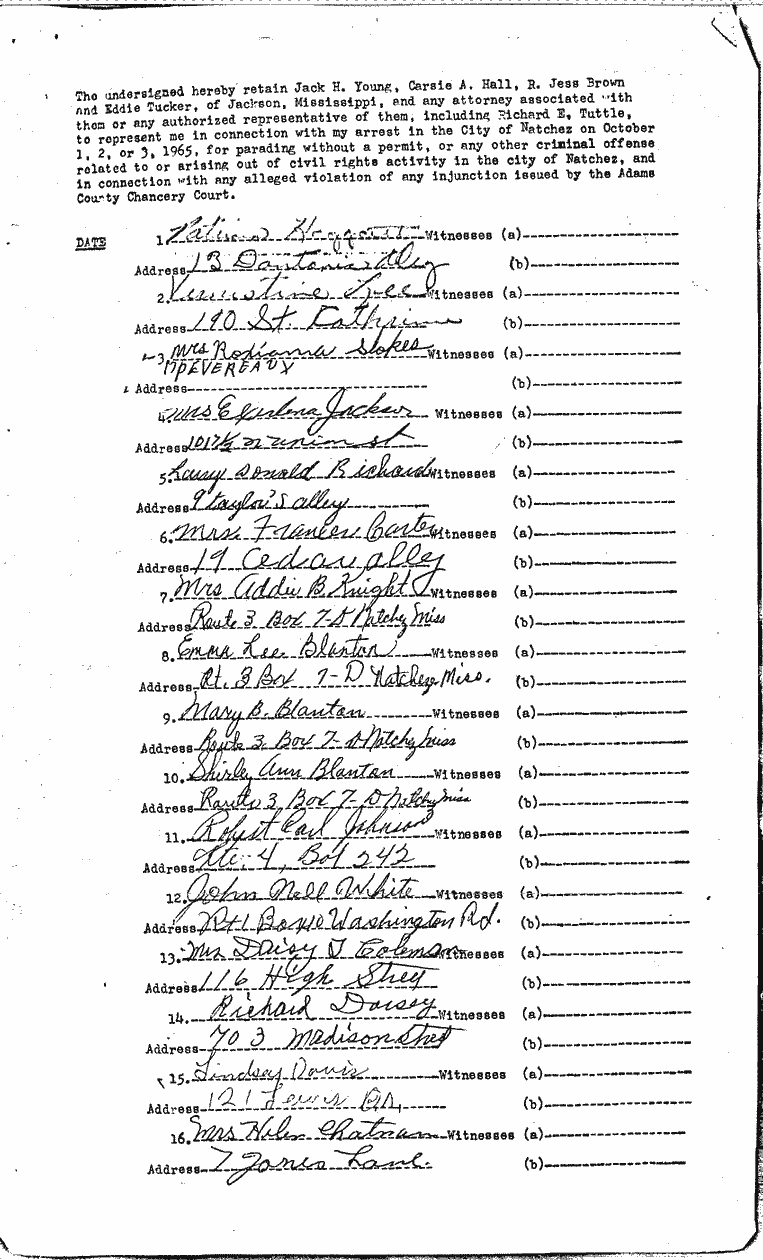 The undersigned hereby retain Jack H. Young, Carsie A. Hall, R. Jess Brown
and Eddie Tucker, of Jackson, Mississippi, and any attorney associated with
them or any authorized representative of them, including Richard E. Tuttle,
to represent me in connection with my arrest in the City of Natchez on October
1, 2, or 3, 1965, for parading without a permit, or any other criminal offense
related to or arising out of civil rights activity in the city of Natchez, and
in connection with any alleged violation of any injunction issued by the Adams
County Chancery Court.
DATE
1. Witnesses (a)
Address 13 (b)
2. Witnesses (a)
Address 190 St. Kathrine (b)
3. Mrs Stokes Witnesses (a)
17 DEVEREAUX
Address (b)
4. Mrs Jackson Witnesses (a)
Address 1017½ N union st (b)
5. Larry Donald Richard Witnesses (a)
Address 9 taylor's alley (b)
6. Mrs. Frances Carter Witnesses (a)
Address 19 Cedar alley (b)
7. Mrs Addie B Knight Witnesses (a)
Address Route 3 Box 7-D Natchez Miss (b)
8. Emma Lee Blanton Witnesses (a)
Address Rt. 3 Box 7-D Natcheze Miss. (b)
9. Mary B. Blanton Witnesses (a)
Address Route 3 Box 7-D Natchez Miss (b)
10. Shirley Ann Blanton Witnesses (a)
Address Route 3 Box 7-D Natchez Miss (b)
11. Robert Earl Johnson Witnesses (a)
Address Rte. 4, Box 242 (b)
12. John Nell White Witnesses (a)
Address Rt 1 Washington Rd. (b)
13. Mrs Daisy Coleman Witnesses (a)
Address 116 High Street (b)
14. Richard Dorsey Witnesses (a)
Address 703 Madison Street (b)
15. Lindsay Davis Witnesses (a)
Address 121 Lewis (b)
16. Mrs Helen Chatman Witnesses (a)
Address 7 Jones Lane. (b)